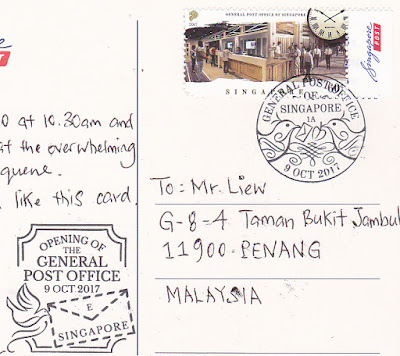 2017
GENERAL POST OFFICE OF SINGAPORE
SINGAPORE
Singapore
POST
POST
GENERAL POST OFFICE
OF
SINGAPORE
1A
9 OCT 2017
0 at 10.30am and
at the overwhelming
queue.
like this card.
To: Mr. Liew
G-8-4 Taman Bukit Jambul
11900 PENANG
MALAYSIA
OPENING OF
THE
GENERAL
POST OFFICE
9 OCT 2017
E
SINGAPORE